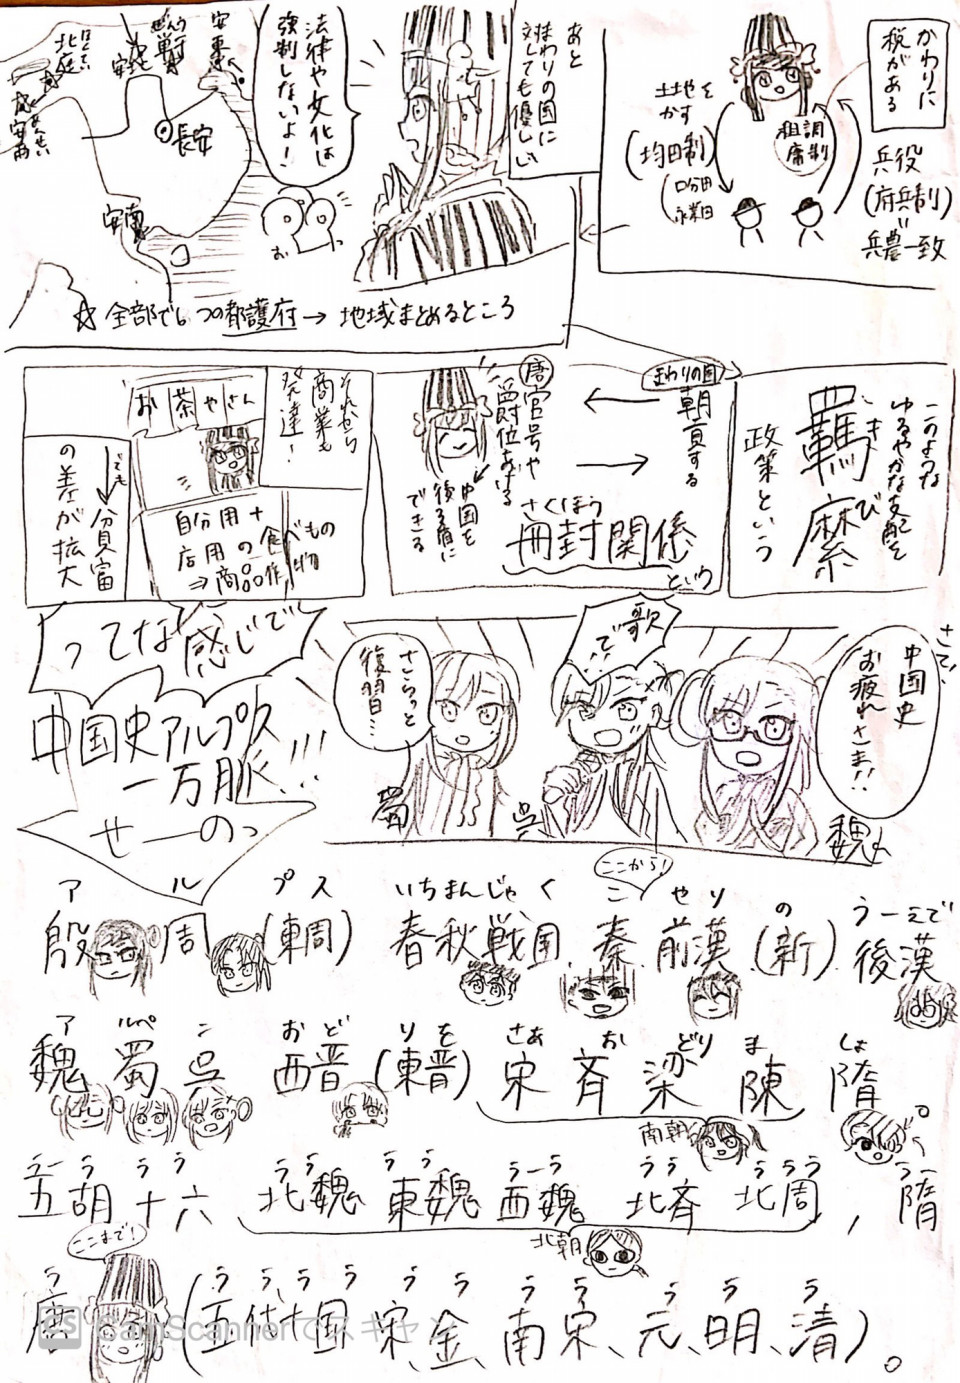 かわりに
税がある
租調庸制
土地を
かす
(均田制)
(口分田
永業田
兵役
(府兵制)
=
兵農一致
あと
まわりの国に
対しても優しい
法律や文化は
強制しないよ!
お
安東
ぜんう
単于
安北
ほくてい
北庭
あんせい
安西
長安
安南
☆全部で6つの都護府→地域まとめるところ
このような
ゆるやかな支配を
羈縻
きび
政策という
まわりの国
朝貢する
唐
官号や
爵位あげる
中国を
後ろ盾に
できる
さくほう
冊封関係
という
それから
商業も
発達!
お茶やさん
自分用+
店用の食べもの
⇒商品作物
でも
↓
貧富
の差が拡大
さて、
中国史
お疲れさま!!
魏
歌で!!
呉
さらっと
復習…
蜀
ってな感じで
中国史アルプス
一万脈!!!
せーのっ
ア ル プス いちまんじゃく
ここから!
こ やり の うーえで
殷 周 (東周) 春秋戦国 秦 前漢 (新) 後漢
ア ルペ ン おど りを さあ お どり ま しょ
魏 蜀 呉 西晋 (東晋) 宋 斉 梁 陳 隋
南朝
うー う う う う う う う うー う う う う う う うー
五胡十六 北魏 東魏 西魏 北斉 北周, 隋
北朝
ここまで!
う う う う う う う う う う う う
唐 (五代十国、宋、金、南宋、元、明、清)。
CS CamScannerでスキャン